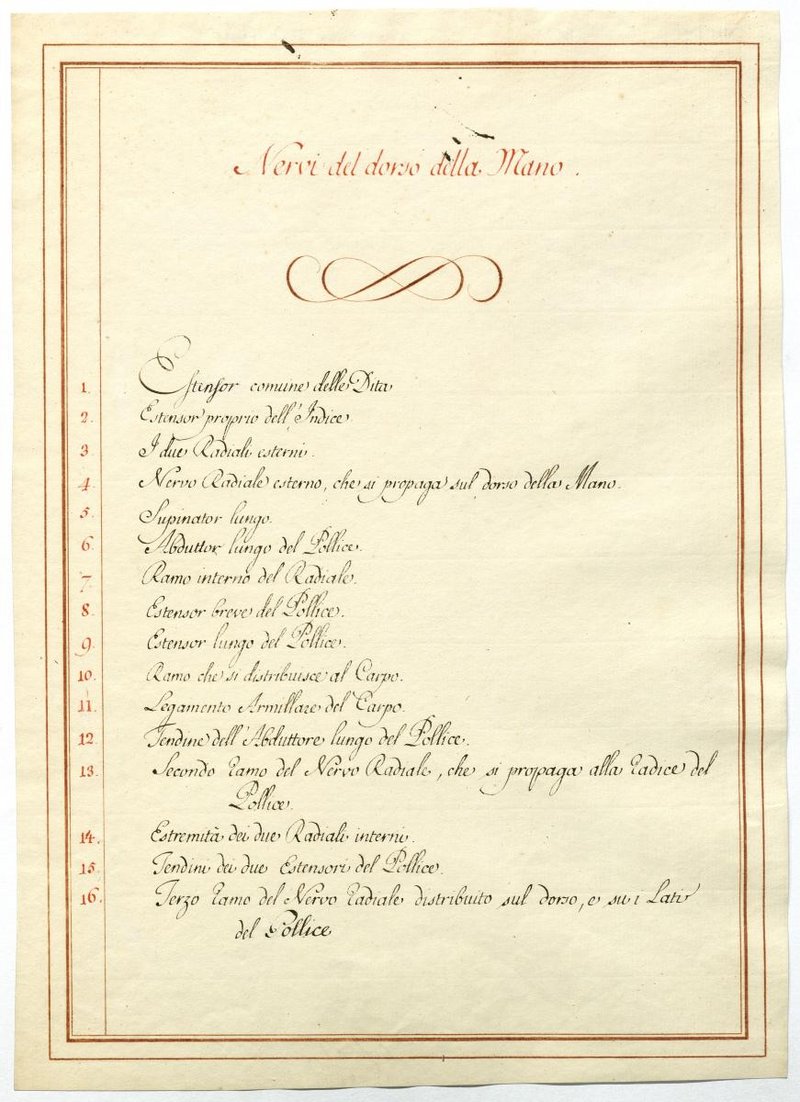 Nervi del dorso della Mano.
1. Estensor comune delle Dita
2. Estensor proprio dell'Indice.
3 I due Radiali esterni.
4 Nervo Radiale esterno, che si propaga sul dorso della Mano.
5. Supinator lungo.
6. Abduttor lungo del Pollice.
7. Ramo interno del Radiale.
8. Estensor breve del Pollice.
9. Estensor lungo del Pollice.
10. Ramo che si distribuisce al Carpo.
11. Legamento Armillare del Carpo.
12. Tendine dell'Abduttore lungo del Pollice.
13. Secondo ramo del Nervo Radiale, che si propaga alla radice del
Pollice.
14. Estremità dei due Radiali interni.
15. Tendini dei due Estensori del Pollice.
16. Terzo ramo del Nervo radiale distribuito sul dorso, e su i Lati
del Pollice